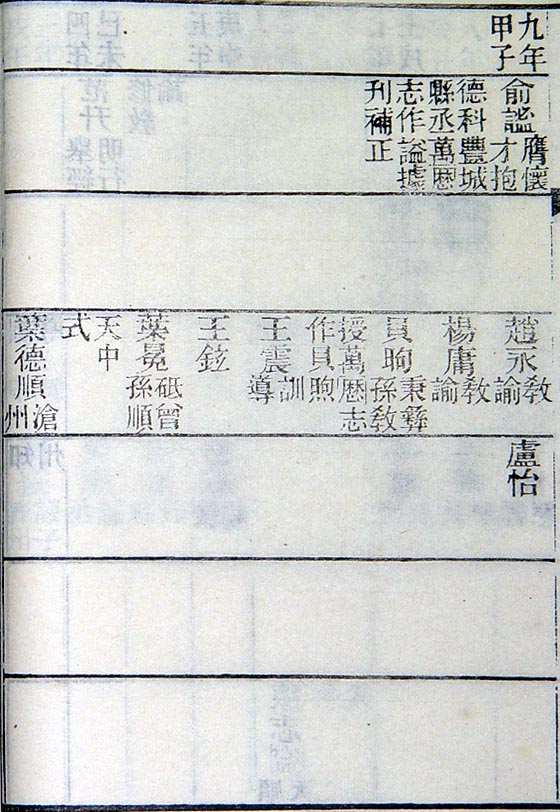 九年
甲子
俞謐膺懷
才抱
德科豐城
縣丞萬歷
志作謚據
刊補正
趙永教
諭
楊庸教
諭
貝昫秉彝
孫教
授萬歷志
作貝煦
王震訓
導
王鉉
葉冕砥曾
孫順
天中
式
葉德順滄
州
盧怡